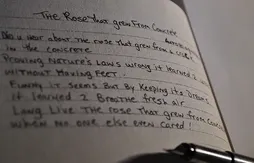 The Rose that grew From Concrete
Did u hear about the rose that grew from a crack
in the concrete
Proving Nature's Laws wrong it learned 2
without Having Feet.
Funny it seems But By Keeping its Dreams
it learned 2 Breathe fresh air
Long Live the rose that grew from concrete
when no one else even cared!